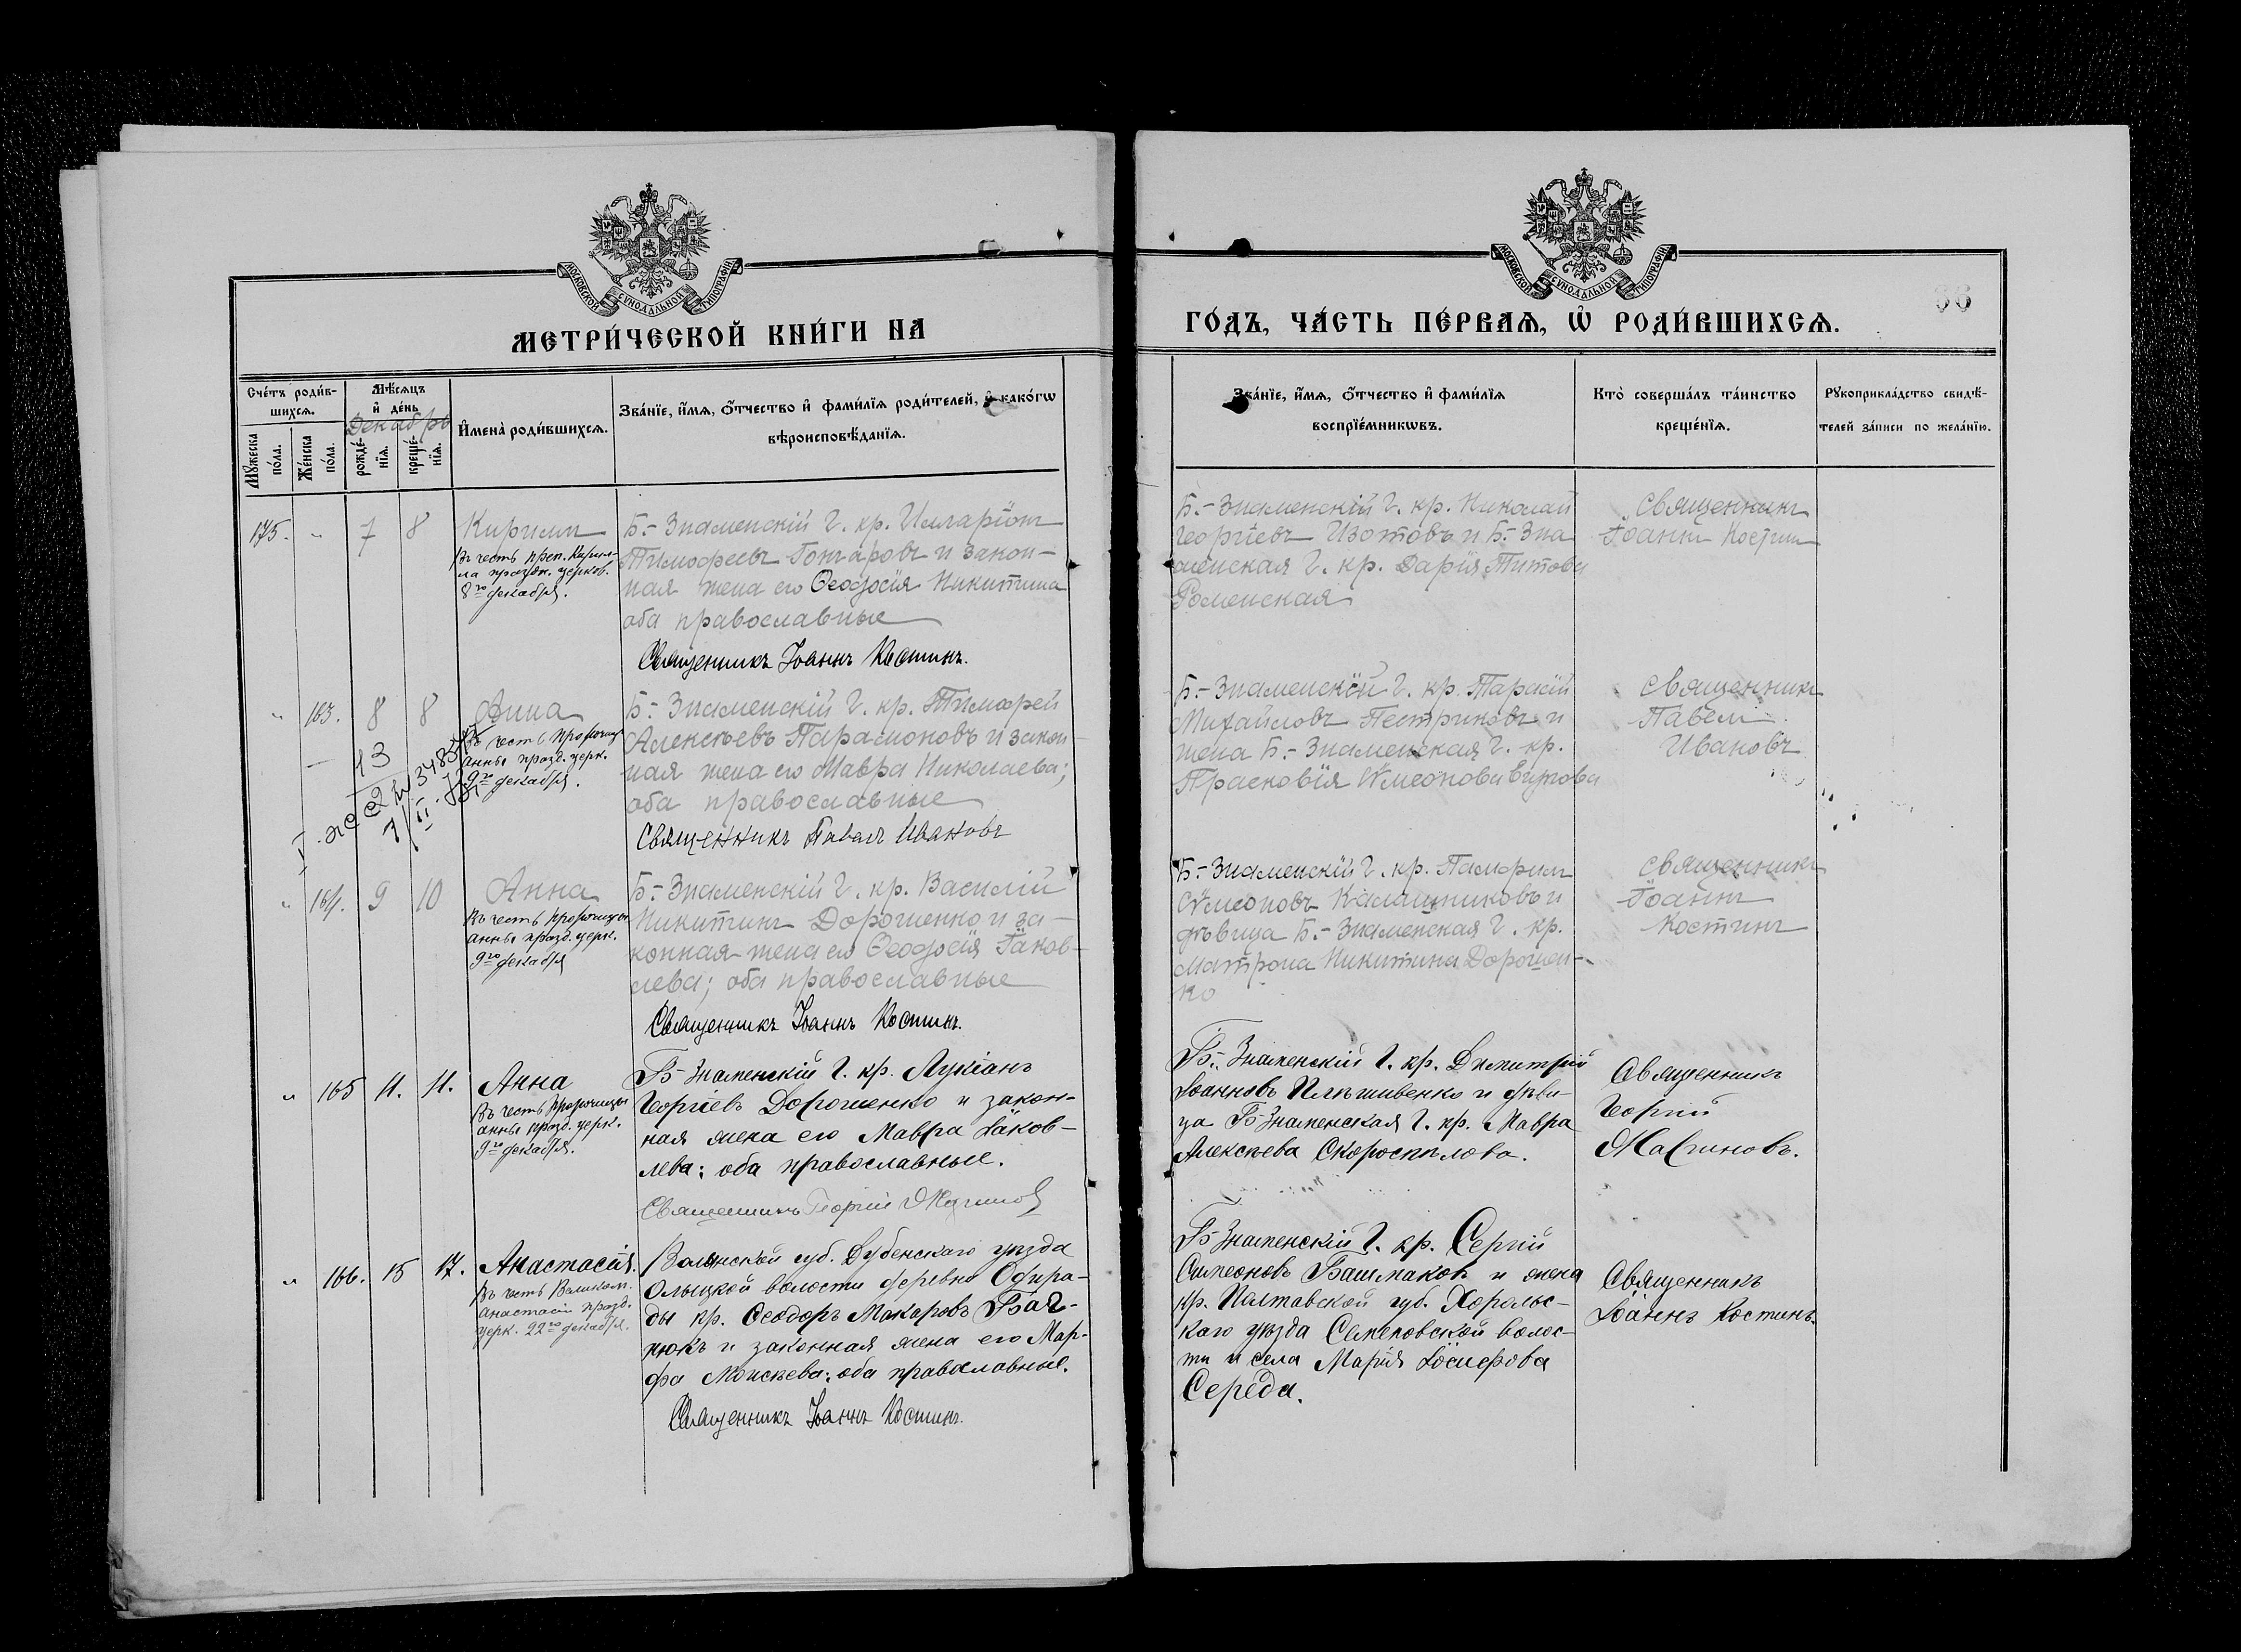 МОСКОВСКОЙ СѴНОДАЛЬНОЙ ТИПОГРАФІИ
МЕТРИ́ЧЕСКОЙ КНИ́ГИ НА
Сче́тъ роди́в-
шихсѧ.
Мꙋ́жеска по́ла.
Же́нска по́ла.
Мѣ́сѧцъ
и҆ де́нь
Декабрь
рожде́-
нїѧ.
креще́-
нїѧ.
И҆мена̀ роди́вшихсѧ.
Зва́нїе, и҆́мѧ, ѻ҆́тчество и҆ фами́лїѧ роди́телей, и҆ како́гѡ
вѣроисповѣ́данїѧ.
175. „ 7 8 Кириллъ
Въ честь преп. Кирил-
ла праздн. церков.
8го декабря.
Б.-Знаменскій Г. кр. Илларіонъ
Тимофеевъ Гончаровъ и закон-
ная жена его Ѳеодосія Никитина
оба православные
Священникъ Іоаннъ Костинъ.
„ 163. 8 8 Анна
Въ честь пророчицы
Анны празд. церк.
9го декабря.
— 13
Б.-Знаменскій Г. кр. Тимофей
Алексѣевъ Парамоновъ и закон-
ная жена его Мавра Николаева;
оба православные
Священникъ Павелъ Ивановъ
„ 164. 9 10 Анна
Въ честь пророчицы
Анны празд. церк.
9го декабря
Б.-Знаменскій Г. кр. Василій
Никитинъ Дорошенко и за-
конная жена его Ѳеодосія Іаков-
лева; оба православные
Священникъ Іоаннъ Костинъ.
„ 165 11. 11. Анна
Въ честь пророчицы
Анны празд. церк.
9го декабря.
Б-Знаменскій Г. кр. Лукіанъ
Георгіевъ Дорошенко и закон-
ная жена его Мавра Іаков-
лева; оба православные.
Священникъ Георгій
„ 166. 15 17. Анастасія.
Въ честь Великом.
Анастасіи празд.
церк. 22го декабря.
Волынской губ. Дубенскаго уѣзда
Олыцкой волости деревни Одира-
ды кр. Ѳеодоръ Макаровъ
и законная жена его Мар-
фа Моисѣева; оба православные.
Священникъ Іоаннъ Костинъ.
МОСКОВСКОЙ СѴНОДАЛЬНОЙ ТИПОГРАФІИ
ГО́ДЪ, ЧА́СТЬ ПЕ́РВАѦ, Ѡ҆ РОДИ́ВШИХСѦ.
66
Зва́нїе, и҆́мѧ, ѻ҆́тчество и҆ фами́лїѧ
воспрїе́мникѡвъ.
Кто̀ соверша́лъ та́инство
креще́нїѧ.
Рꙋкоприкла́дство свидѣ́-
телей за́писи по жела́нїю.
Б.-Знаменскій Г. кр. Николай
Георгіевъ Изотовъ и Б.-Зна
менская Г. кр. Дарія Титова
Роменская
Священникъ
Іоаннъ Костинъ
Б.-Знаменскій Г. кр. Тарасій
Михайловъ Пестриковъ и
жена Б.-Знаменская Г. кр.
Прасковія Сѵмеонова
Священникъ
Павелъ
Ивановъ
Б.-Знаменскій Г. кр. Памфилъ
Сѵмеоновъ Калашниковъ и
дѣвица Б.-Знаменская Г. кр.
Матрона Никитина Дорошен-
ко
Священникъ
Іоаннъ
Костинъ
Б.-Знаменскій Г. кр. Димитрій
Іоанновъ Плѣшивенко и дѣви-
ца Б-Знаменская Г. кр. Мавра
Алексѣева Скороспѣлова.
Священникъ
Георгій
Б-Знаменскій Г. кр. Сергій
Симеоновъ Башмаковъ и жена
кр. Полтавской губ. Хорольс-
каго уѣзда Семеновской волос-
ти и села Марія Іосифова
Середа.
Священникъ
Іоаннъ Костинъ.